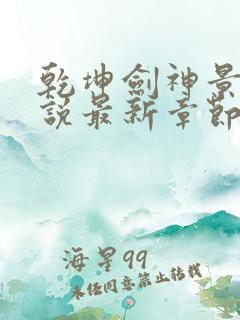 乾坤劍神景
說最新章節
海星99
未经同意禁止转载